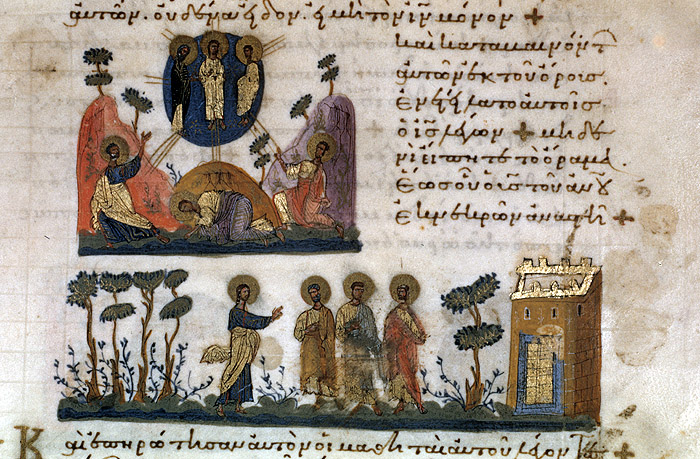 αὐτῶν. οὐδένα εἶδον. εἰ μὴ τὸν ιν μόνον +
καὶ καταβαινόντ
αὐτῶν ἐκ τοῦ ὄρους.
ἐνετείλατο αὐτοῖς
ὁ ις λέγων + μηδε
νὶ εἴπητε τὸ ὅραμα.
ἕως οὗ ὁ υις τοῦ ανου
ἐκ νεκρῶν ἀναστῆ +
Καὶ ἐπηρώτησαν αὐτὸν οἱ μαθηταὶ αὐτοῦ λέγον